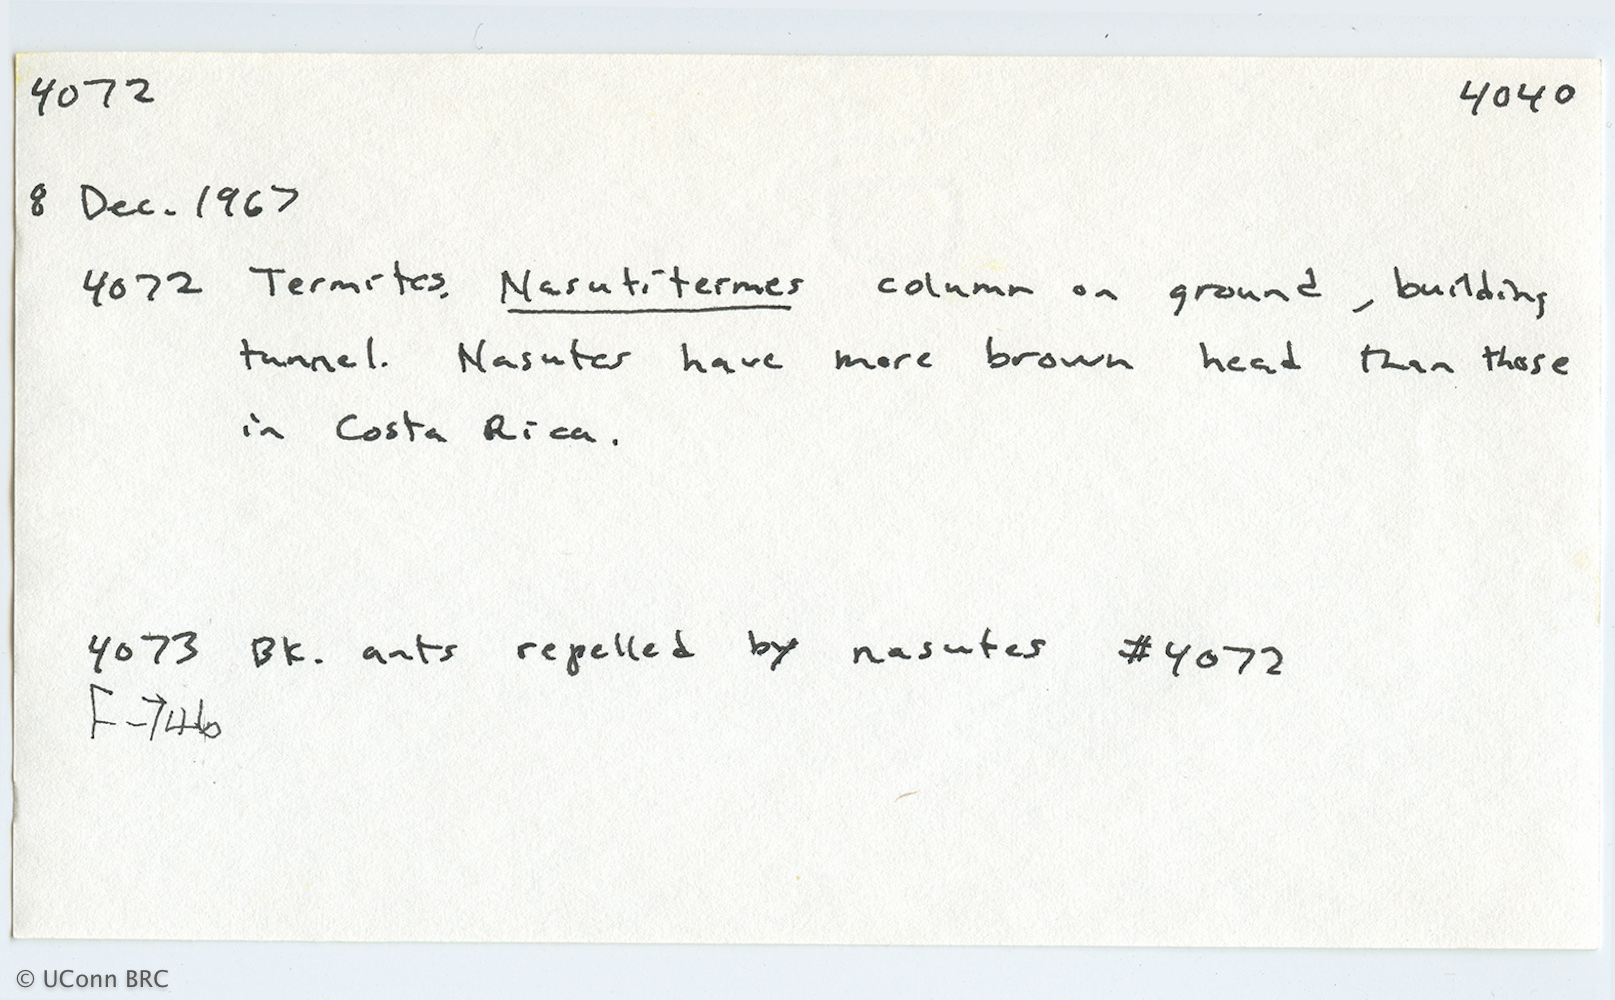 4072 4040
8 Dec. 1967
4072 Termites. Nasutitermes column on ground, building
tunnel. Nasutes have more brown head than those
in Costa Rica.
4073 Bk. ants repelled by nasutes #4072
F-746
© UConn BRC